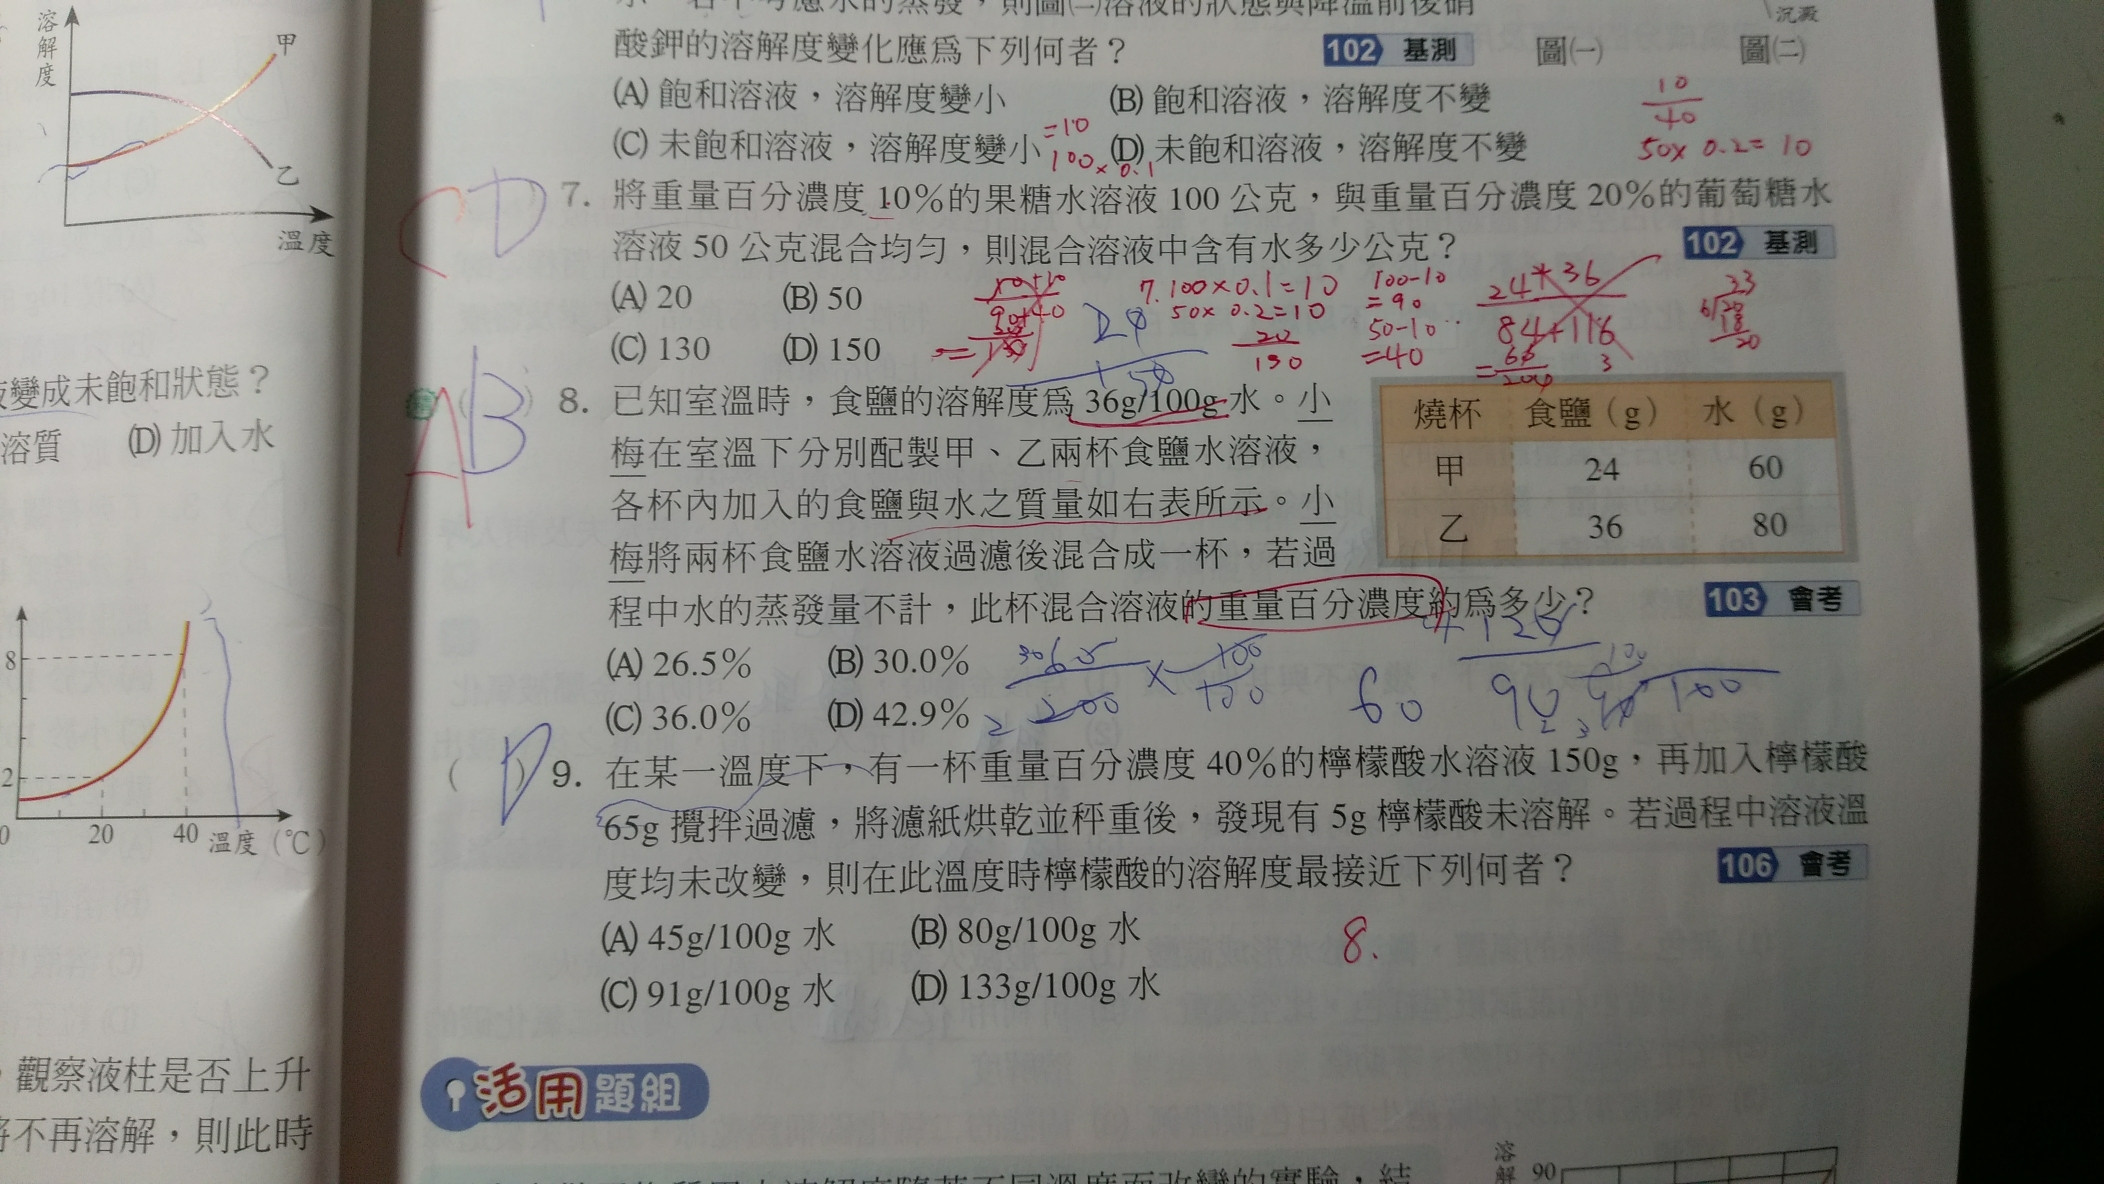 溶解度
甲
乙
溫度
變成未飽和狀態?
溶質 (D) 加入水
8
2
0 20 40 溫度(℃)
觀察液柱是否上升
不再溶解,則此時
沉澱
酸鉀的溶解度變化應為下列何者? 102 基測 圖㈠ 圖㈡
(A) 飽和溶液,溶解度變小 (B) 飽和溶液,溶解度不變
(C) 未飽和溶液,溶解度變小 (D) 未飽和溶液,溶解度不變
10
40
50× 0.2=10
=10
100×0.1
CD
7. 將重量百分濃度 10%的果糖水溶液 100 公克,與重量百分濃度 20%的葡萄糖水
溶液 50 公克混合均勻,則混合溶液中含有水多少公克? 102 基測
(A) 20 (B) 50
(C) 130 (D) 150
10+10
90+40
7. 100×0.1=10
50× 0.2=10
20
130
100-10
=90
50-10
=40
24+36
84+116
AB
8. 已知室溫時,食鹽的溶解度為 36g/100g 水。小
梅在室溫下分別配製甲、乙兩杯食鹽水溶液,
各杯內加入的食鹽與水之質量如右表所示。小
梅將兩杯食鹽水溶液過濾後混合成一杯,若過
程中水的蒸發量不計,此杯混合溶液的重量百分濃度約為多少? 103 會考
燒杯 食鹽(g) 水(g)
甲 24 60
乙 36 80
(A) 26.5% (B) 30.0%
(C) 36.0% (D) 42.9%
60
D
( ) 9. 在某一溫度下,有一杯重量百分濃度 40%的檸檬酸水溶液 150g,再加入檸檬酸
65g 攪拌過濾,將濾紙烘乾並秤重後,發現有 5g 檸檬酸未溶解。若過程中溶液溫
度均未改變,則在此溫度時檸檬酸的溶解度最接近下列何者? 106 會考
(A) 45g/100g 水 (B) 80g/100g 水
(C) 91g/100g 水 (D) 133g/100g 水
8.
活用題組
溶解 90